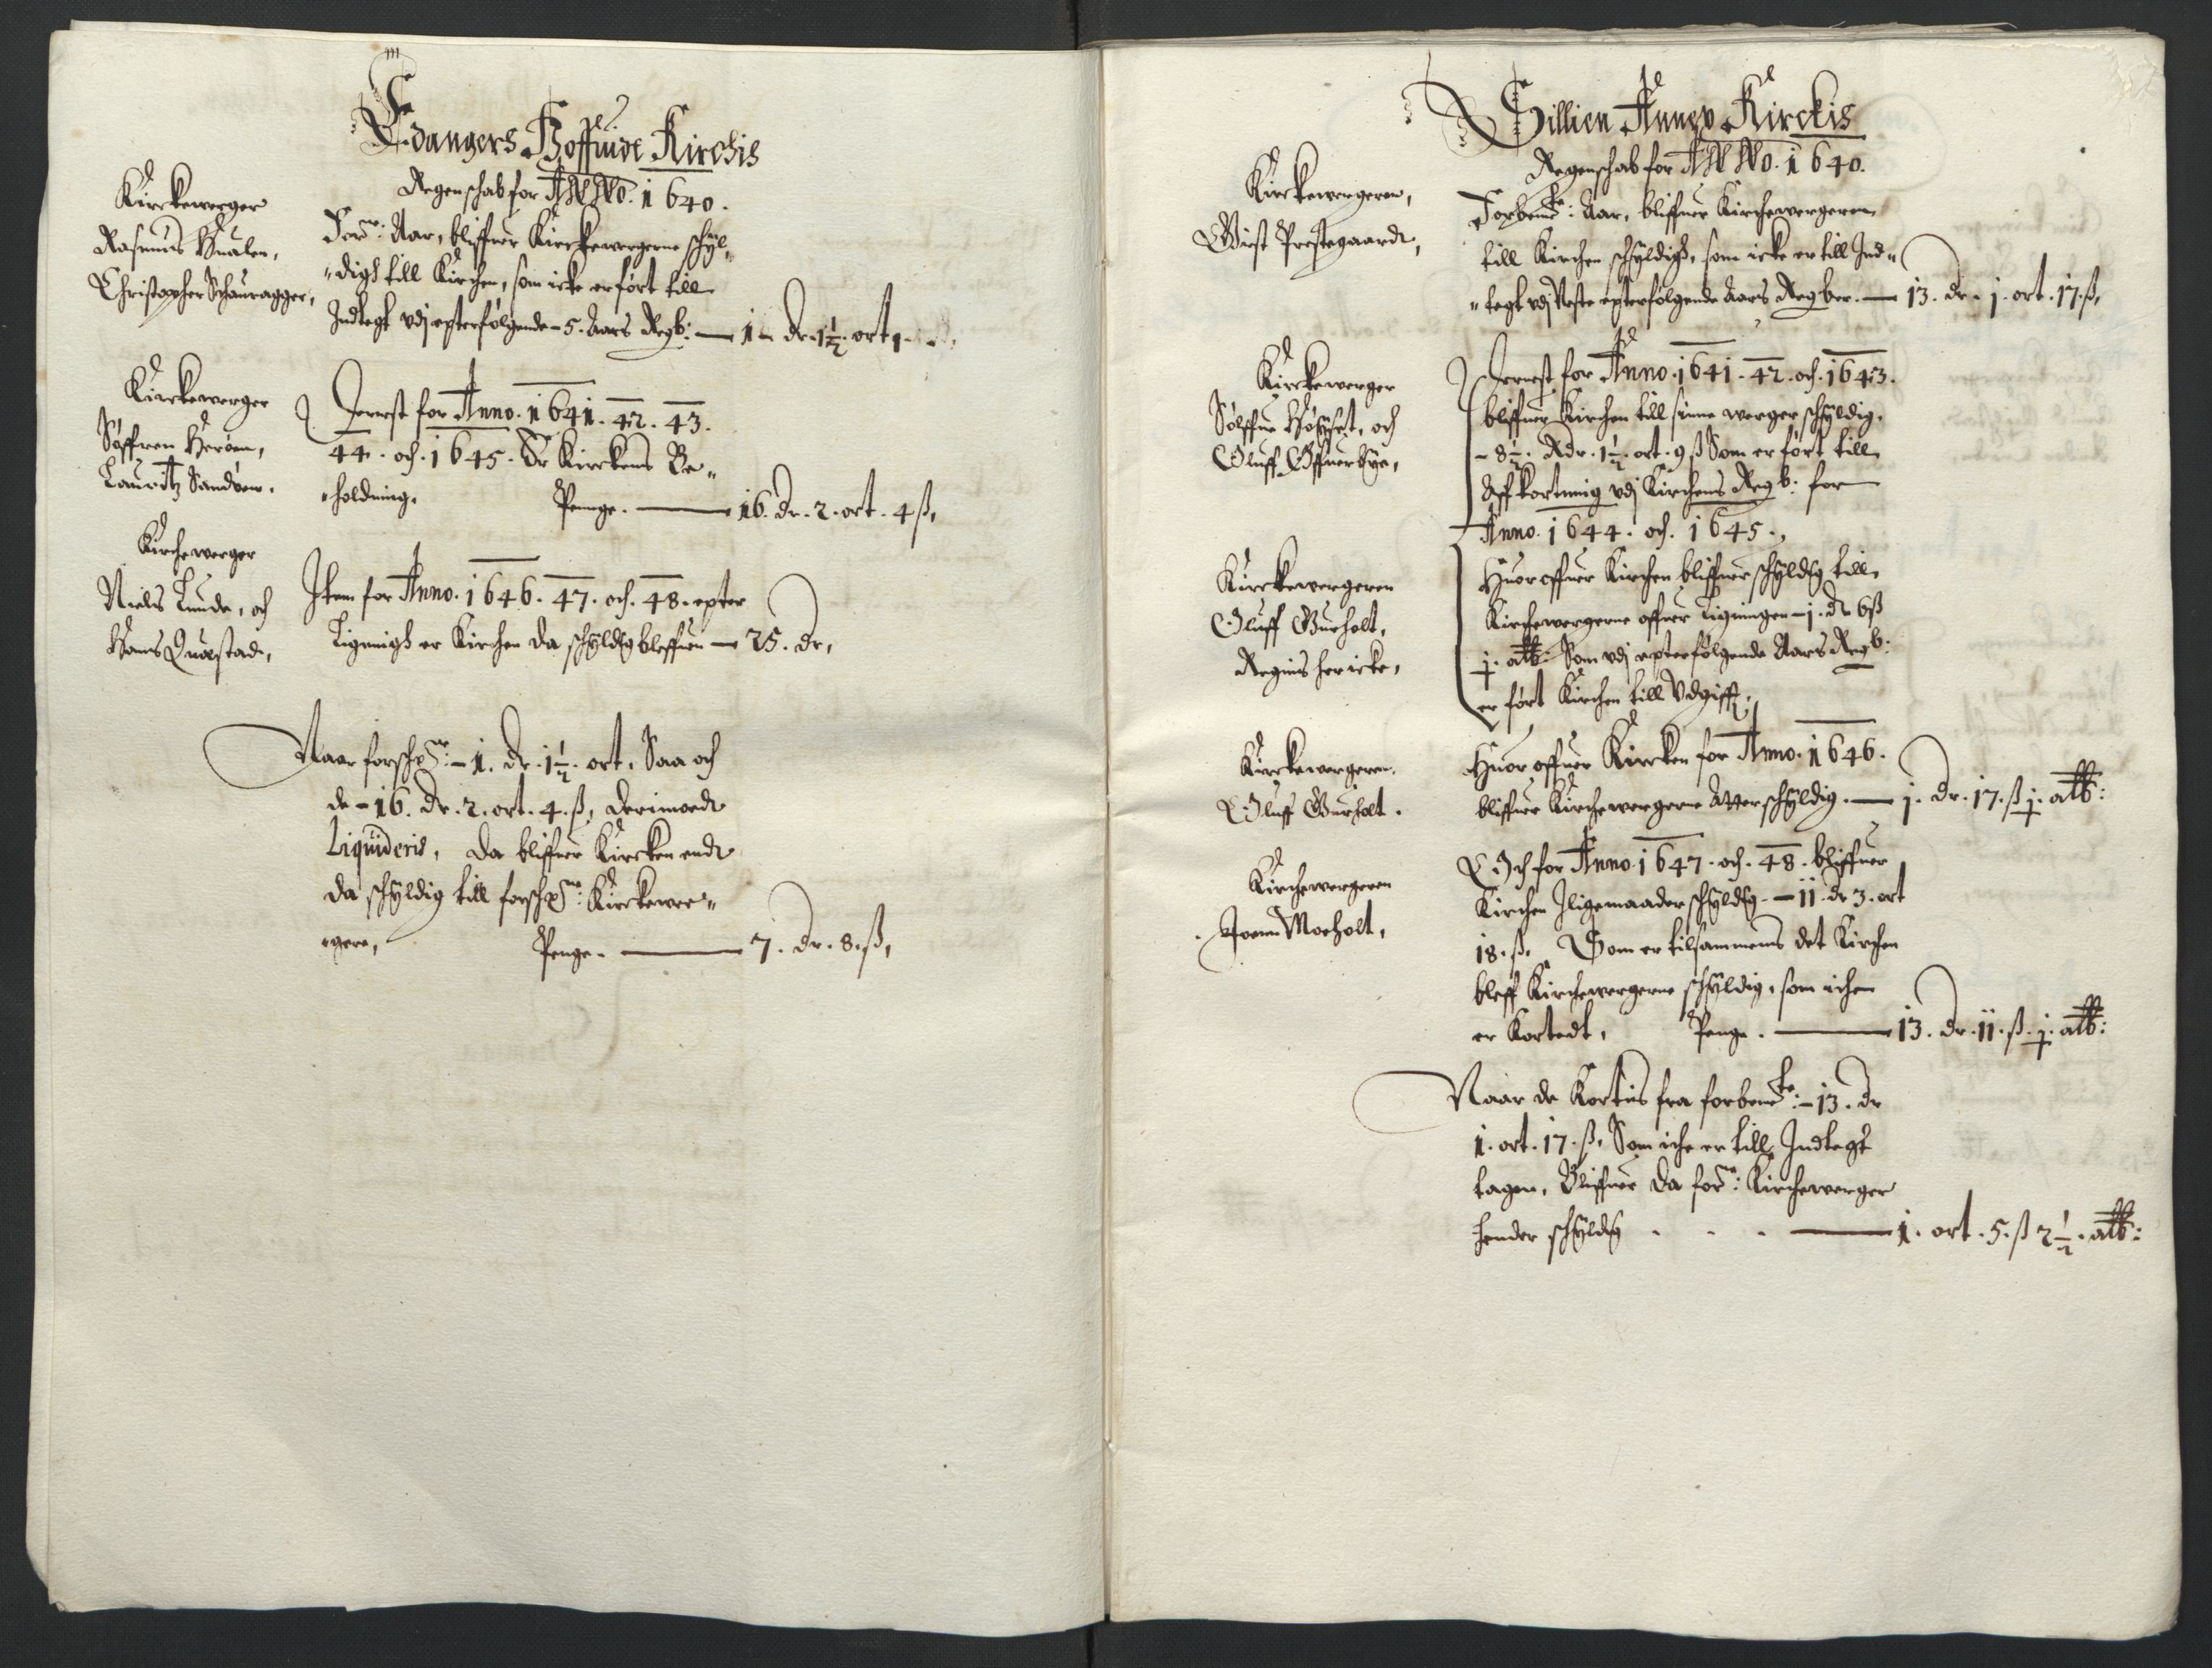 Edangers Hoffuide Kirchis
Regenschab for ANNO. 1640.
Kirckewerger
Rasmus Hualen,
Christopher Schauragger,
Forne: Aar, bliffuer Kirckewergerne schyl„
„digh till Kirchen, som icke er ført till
Indtegt vdj epterfølgende 5. Aars Regb: — 1 – dr. 1½ ort
Kirckewerger
Søffren Herøen,
Lauritz Sandven.
Dernest for Anno. 1641. 42. 43.
44. och. 1645. Er Kirckens Be„
„holdning.
Penge. — 16. dr. 2. ort. 4 ß,
Kirchewerger
Niels Lunde, och
Hans Quastad,
Item for Anno. 1646. 47. och. 48. epter
Ligningh er Kirchen da schyldig bleffuen — 25. dr,
Naar forschne: – 1. dr. 1½. ort. Saa och
de – 16. dr. 2. ort. 4. ß, derimodt
Liquideris, da bliffuer Kircken endt
da schyldig till forschne: Kirckewer„
„gere,
Penge. — 7. dr. 8. ß,
Gillien Annex Kirckis
Regenschab for ANNO. 1640.
Kirckewergeren,
Gurist Prestegaardt,
Forbemte: Aar, bliffuer Kirchewergeren
till Kirchen schyldigh, som icke er till Ind„
„tegt vdj Neste epterfølgende Aars Regber. — 13. dr. j. ort. 17. ß,
Kirckewerger
Sølffue Høyset, och
Oluff Offuerbye,
Dernest for Anno. 1641. 42. och. 1643.
bliffuer Kirchen till sinne werger schyldig,
– 8½. Rdr. 1½. ort. 9 ß Som er ført till
Affkortning vdj Kirchens Regb: for
Anno. 1644. och. 1645.,
Kirckewergeren
Oluff Burholt,
Regnis her icke,
Huor offuer Kirchen bliffuer schyldig till
Kirchewergerne offuer Ligningen – j. dr 6 ß
j. alb: Som vdj epterfølgende Aars Regb:
er ført Kirchen till Vdgifft,
Kirckewergeren,
Oluff Burholt.
Huor offuer Kircken for Anno. 1646.
bliffuer Kirchewergerne Atter schyldig. — j. dr. 17. ß j. alb:
Kirchewergeren
Joenn Moeholt,
Och for Anno. 1647. och. 48. bliffuer
Kirchen Iligemaader schyldig. – 11. dr 3. ort
18. ß. Som er tilsammens det Kirchen
bleff Kirchewergerne schyldig, som ichen
er Kortedt, Penge. — 13. dr. 11. ß. j. alb:
Naar de Kortis fra forbemte: – 13. dr
1. ort. 17. ß, Som iche er till Indtegt
tagen, Bliffuer da forne: Kirchewerger
hender schyldig . . . — 1. ort. 5. ß 2½. alb: